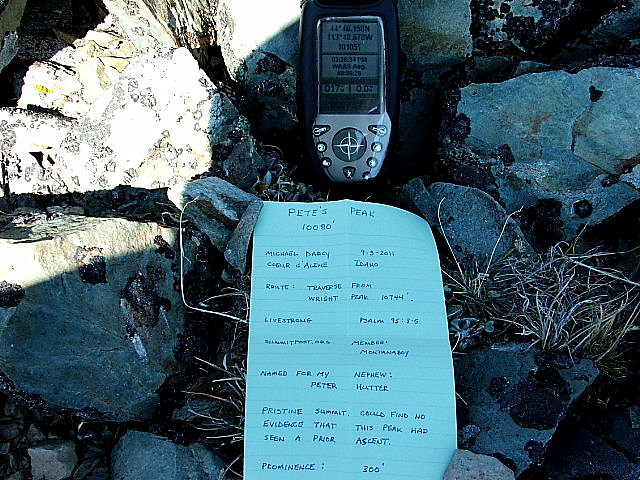 44°46.150N
113°40.670W
10105ft
03:26:34 PM
WAAS Avg.
PETE'S PEAK
10080'
MICHAEL DARCY 9-3-2011
COEUR D'ALENE IDAHO
ROUTE: TRAVERSE FROM
WRIGHT PEAK 10744'.
LIVESTRONG PSALM 95:3-5
SUMMITPOST.ORG MEMBER:
MONTANABOY
NAMED FOR MY NEPHEW:
PETER HUTTER
PRISTINE SUMMIT. COULD FIND NO
EVIDENCE THAT THIS PEAK HAD
SEEN A PRIOR ASCENT.
PROMINENCE: 300'